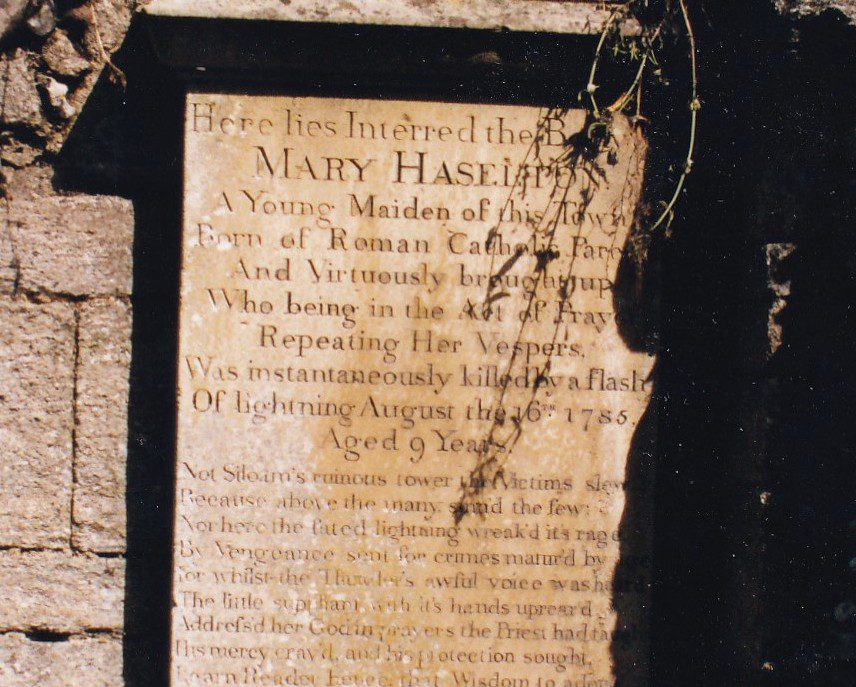 Here lies Interred the
MARY HASELTON
A Young Maiden of this Town
Born of Roman Catholic
And Virtuously brought up
Who being in the Act of
Repeating Her Vespers,
Was instantaneously killed by a flash
Of lightning August the 16th 1785.
Aged 9 Years.
Not Siloam's ruinous tower the Victims slew
Because above the many sinn'd the few:
Nor here the fated lightning wreak'd it's rage
By Vengeance sent for crimes matur'd by
For whilst the Thunder's awful voice was heard
The little suppliant with it's hands uprear'd
Addrefs'd her God in prayers the Priest had
His mercy crav'd, and his protection sought,
Learn Reader hence that Wisdom to